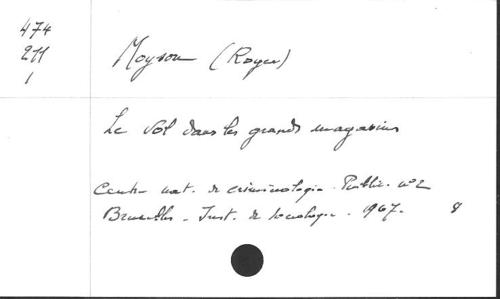 474
211
1
Moyson (Roger)
Le vol dans les grands magasins
Centre nat. de criminologie. Public. n° 2
Bruxelles - Inst. de sociologie. 1967. 8